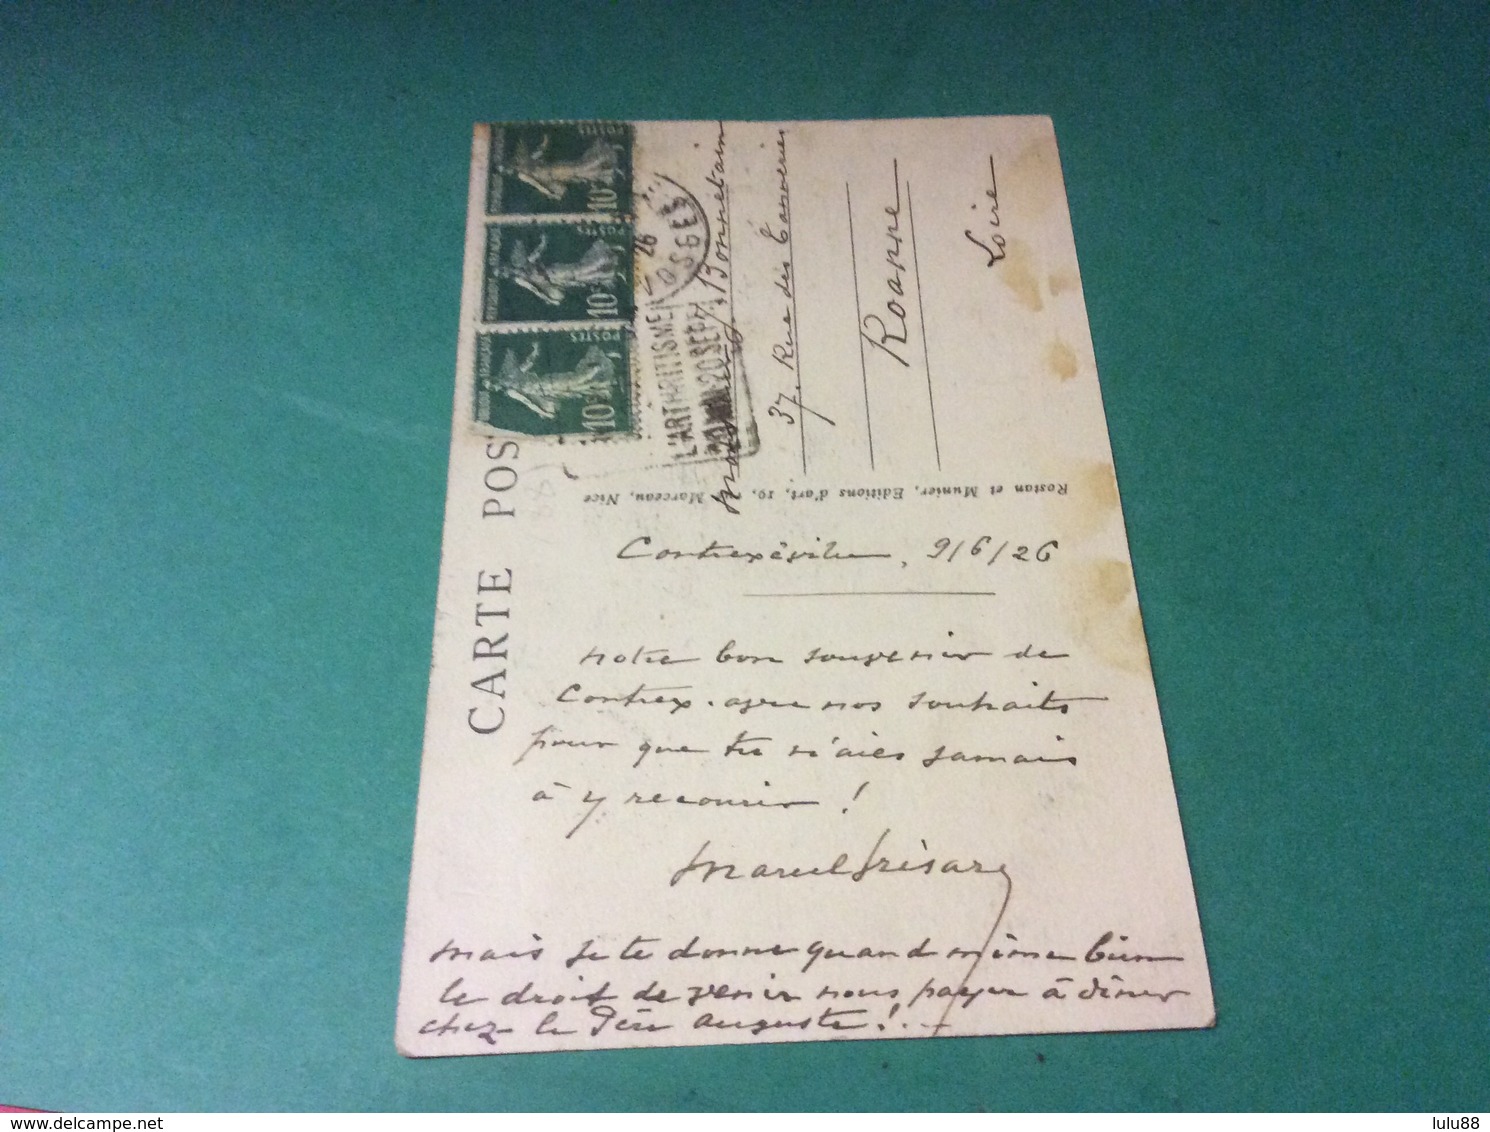 CARTE POS
POSTES
10c
POSTES
10c
POSTES
10c
26
OSGES
L'ARTHRITISME
20 SEPT
Bonnetain
37, Rue des Tanneries
Roanne
Loire
Rostan et Munier, Editions d'art, 10, Marceau, Nice
Contrexéville, 9/6/26
notre bon souvenir de
Contrex. avec nos souhaits
pour que tu n'aies jamais
à y recourir !
Marcel
mais je te donne quand même bien
le droit de venir nous payer à dîner
chez le Père Auguste !. —
www.delcampe.net
lulu88